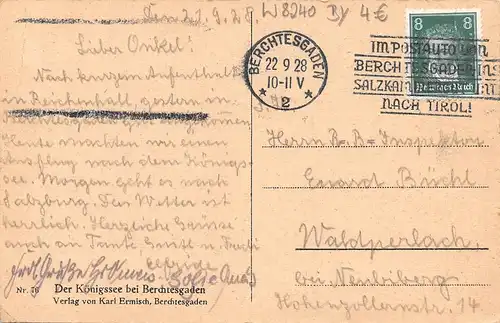 21.9.28. W8240 By 4 €
Lieber Onkel!
Nach kurzem Aufenthalt
in Reichenhall, gestern in
Heute machten wir einen
Ausflug nach dem Königs-
see. Morgen geht es nach
Salzburg. Das Wetter ist
herrlich. Herzliche Grüsse
auch an Tante
Nr. 76 Der Königssee bei Berchtesgaden
Verlag von Karl Ermisch, Berchtesgaden
BERCHTESGADEN
22 9 28
10-11 V
* 2 *
8 8
Deutsches Reich
IM POSTAUTO VON
BERCHTESGADEN INS
SALZKAMMERGUT
NACH TIROL!
Herrn B.-B.-Inspektor
Eduard Büchl
Waldperlach
bei Neubiberg
Hohenzollernstr. 14